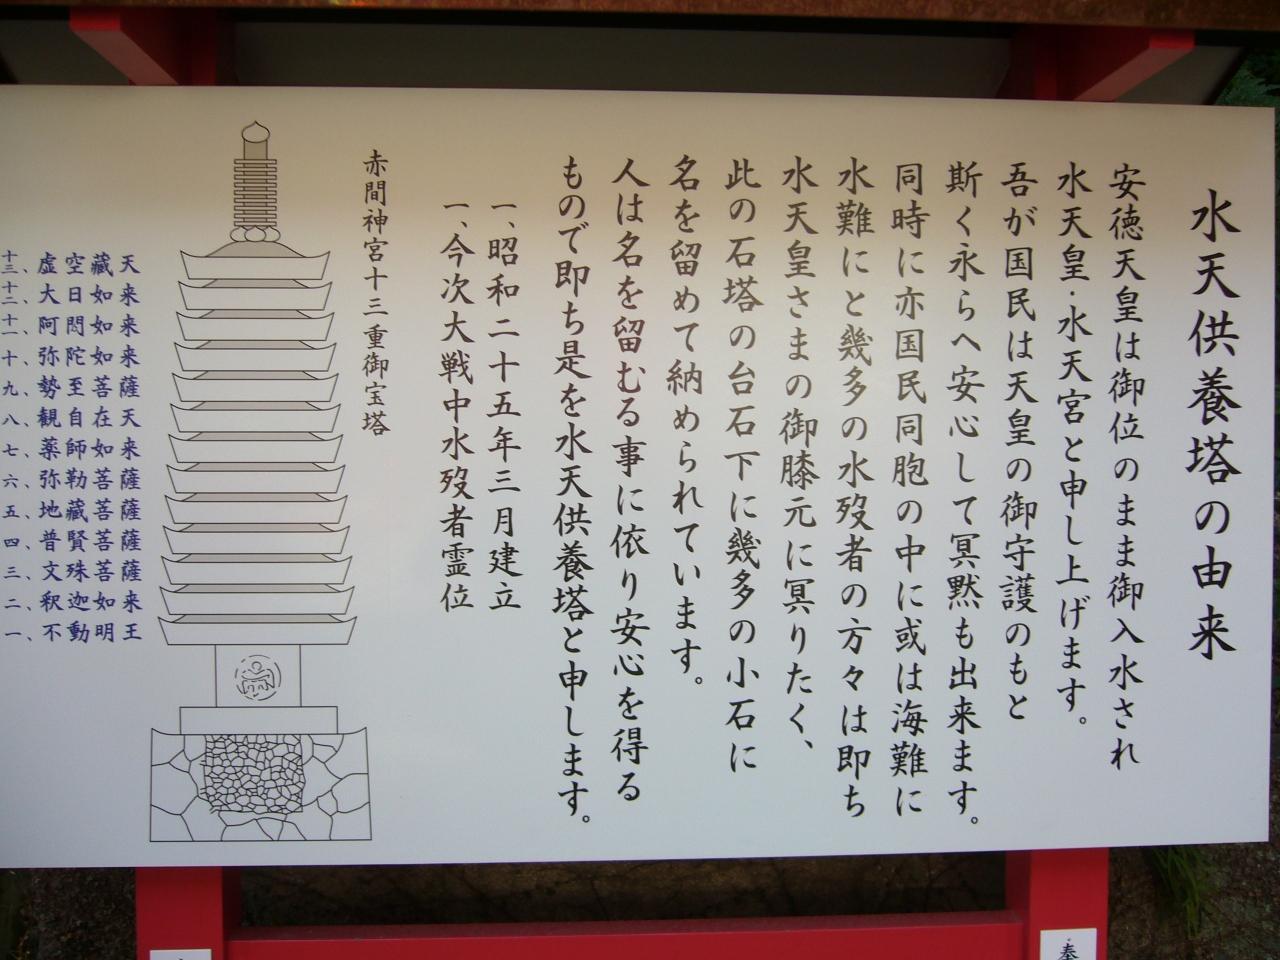 水天供養塔の由来
安徳天皇は御位のまま御入水され
水天皇・水天宮と申し上げます。
吾が国民は天皇の御守護のもと
斯く永らへ安心して冥黙も出来ます。
同時に亦国民同胞の中に或は海難に
水難にと幾多の水歿者の方々は即ち
水天皇さまの御膝元に冥りたく、
此の石塔の台石下に幾多の小石に
名を留めて納められています。
人は名を留むる事に依り安心を得る
もので即ち是を水天供養塔と申します。
一、昭和二十五年三月建立
一、今次大戦中水歿者霊位
赤間神宮十三重御宝塔
十三、虚空藏天
十二、大日如来
十一、阿閦如来
十、弥陀如来
九、勢至菩薩
八、観自在天
七、薬師如来
六、弥勒菩薩
五、地藏菩薩
四、普賢菩薩
三、文殊菩薩
二、釈迦如来
一、不動明王
奉